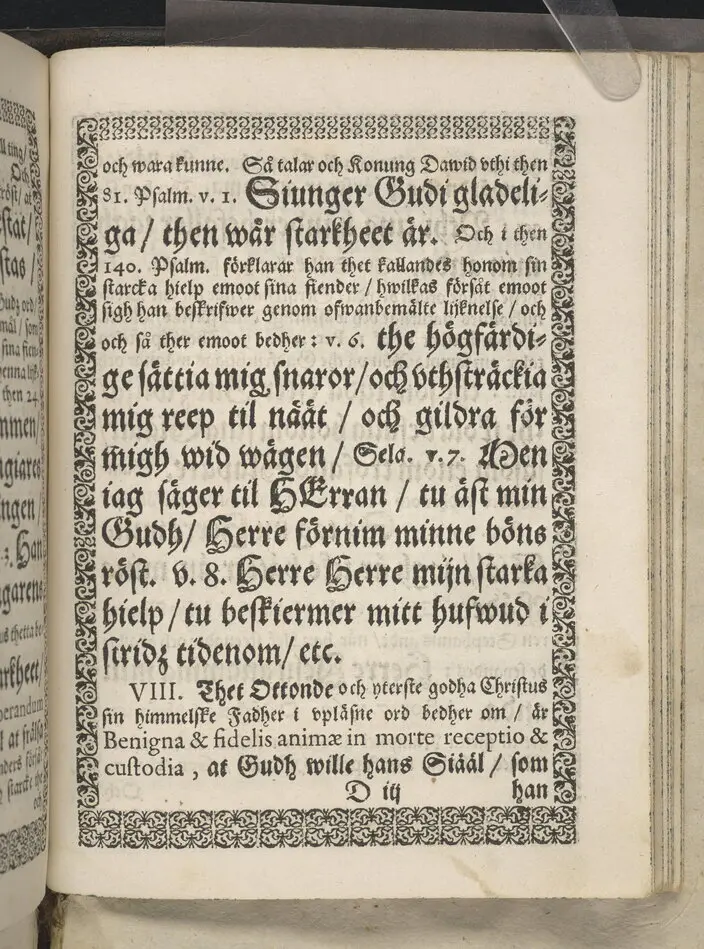 och wara kunne. Så talar och Konung Dawid vthi then
81. Psalm. v. 1. Siunger Gudi gladeli-
ga / then wår starkheet är. Och i then
140. Psalm. förklarar han thet kallandes honom sin
starcka hielp emoot sina fiender / hwilkas försåt emoot
sigh han beskrifwer genom ofwanbemälte lijknelse / och
och så ther emoot bedher : v. 6. the högfärdi-
ge sättia mig snaror / och vthsträckia
mig reep til näät / och gildra för
migh wid wägen / Sela. v. 7. Men
iag säger til HErran / tu äst min
Gudh / Herre förnim minne böns
röst. v. 8. Herre Herre mijn starka
hielp / tu beskiermer mitt hufwud i
stridz tidenom / etc.
VIII. Thet Ottonde och yterste godha Christus
sin himmelske Fadher i vpläsne ord bedher om / är
Benigna & fidelis animæ in morte receptio &
custodia , at Gudh wille hans Siääl / som
D iij han
ll ting /
röst / at
stat /
stas /
Gudz ord
mål / som
sina fien-
then 24.
mmen /
agiares
ngen /
Han
garens
rkheet /
och